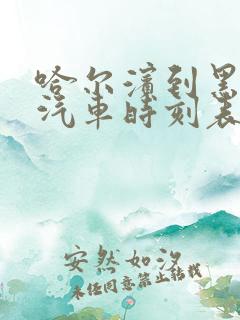 哈尔滨到黑
汽车时刻表
安然如汐
未经同意禁止转载